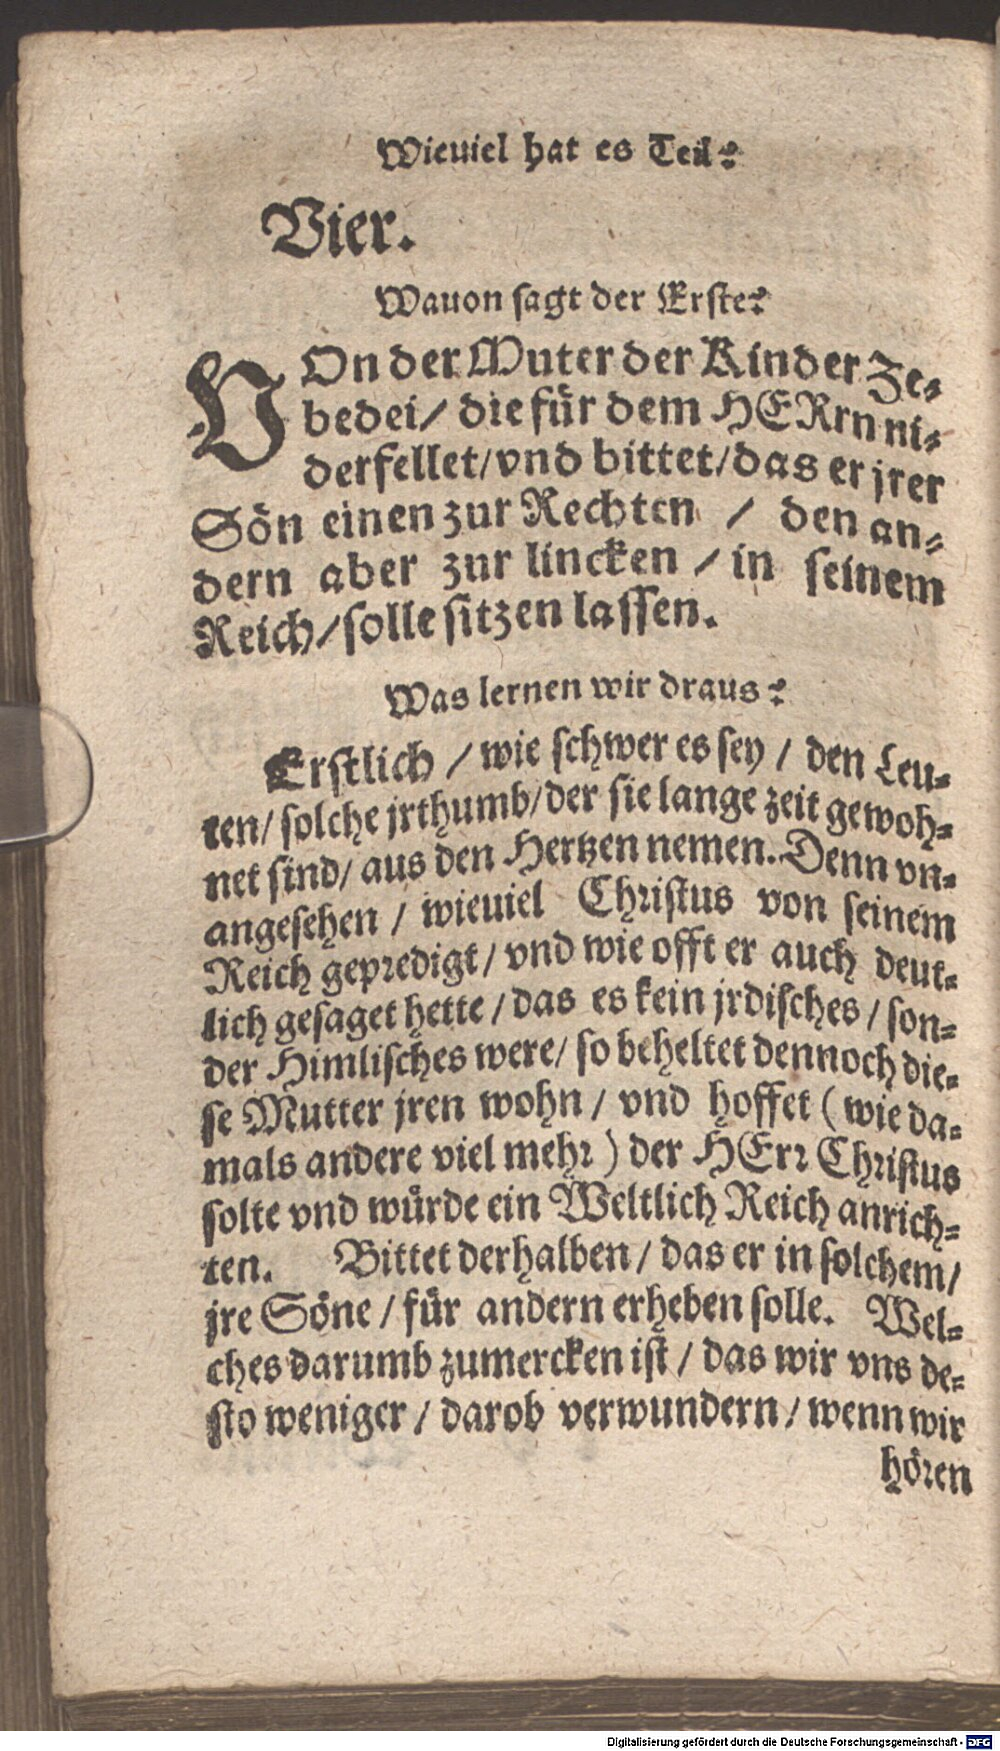 Wieuiel hat es Teil?
Vier.
Wauon sagt der Erste?
VOn der Muter der Kinder Ze-
bedei/ die für dem HERrn ni-
derfellet/vnd bittet/das er jrer
Sön einen zur Rechten / den an-
dern aber zur lincken / in seinem
Reich/solle sitzen lassen.
Was lernen wir draus?
Erstlich / wie schwer es sey / den Leu-
ten/ solche jrthumb/der sie lange zeit gewoh-
net sind/ aus den Hertzen nemen. Denn vn-
angesehen / wieuiel Christus von seinem
Reich gepredigt/ vnd wie offt er auch deut-
lich gesaget hette / das es kein jrdisches / son-
der Himlisches were/ so beheltet dennoch die-
se Mutter jren wohn / vnd hoffet ( wie da-
mals andere viel mehr ) der HErr Christus
solte vnd würde ein Weltlich Reich anrich-
ten. Bittet derhalben / das er in solchem/
jre Söne / für andern erheben solle. Wel-
ches darumb zumercken ist / das wir vns de-
sto weniger / darob verwundern / wenn wir
hören
Digitalisierung gefördert durch die Deutsche Forschungsgemeinschaft - DFG